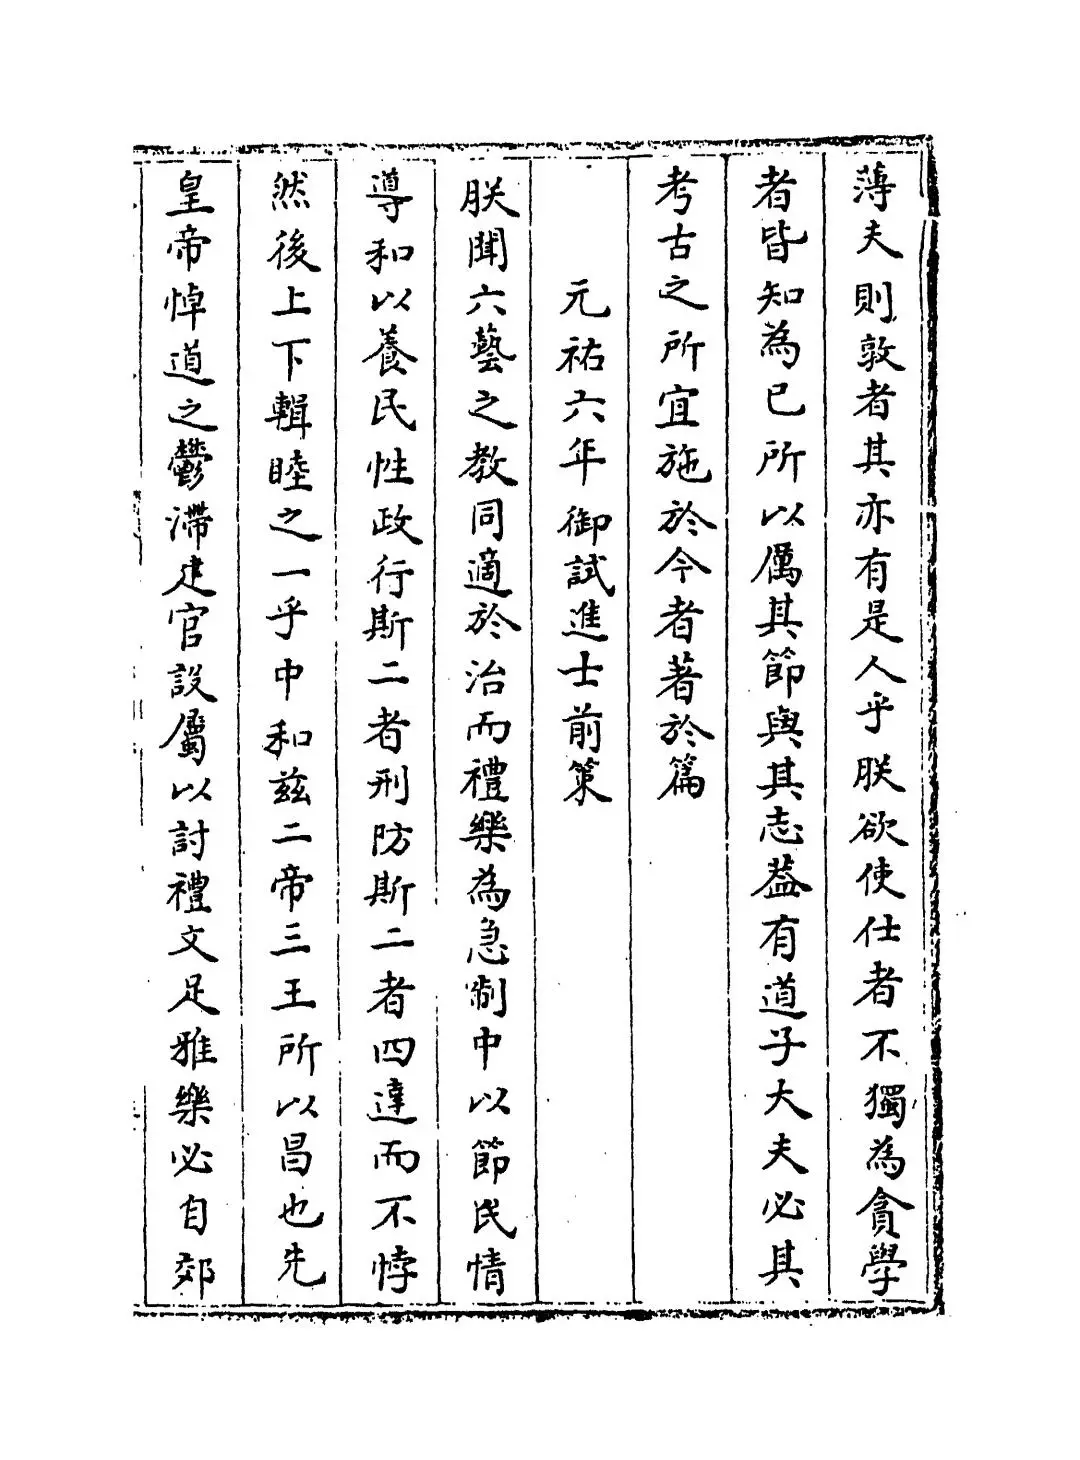 薄夫則敦者其亦有是人乎朕欲使仕者不獨為貪學
者皆知為已所以厲其節與其志葢有道子大夫必其
考古之所宜施於今者著於篇
元祐六年御試進士前策
朕聞六藝之教同適於治而禮樂為急制中以節民情
導和以養民性政行斯二者刑防斯二者四達而不悖
然後上下輯睦之一乎中和兹二帝三王所以昌也先
皇帝悼道之鬱滯建官設屬以討禮文足雅樂必自郊